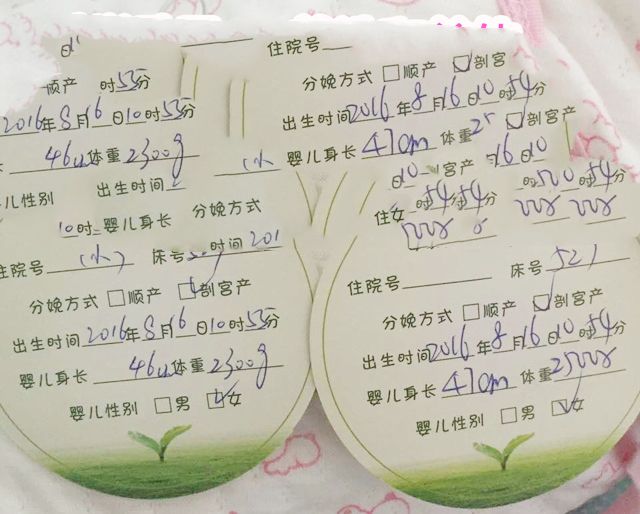 住院号
顺产 时55分
分娩方式 □顺产 ☑剖宫产
2016年8月16日10时55分
出生时间2016年8月16日10时54分
46cm体重2300g
婴儿身长47cm 体重25 ☑剖宫产
儿性别 出生时间
宫产 16日10
10时 婴儿身长 分娩方式
住女 时54分54分 时54分
住院号(小) 床号 时间201
住院号 床号521
分娩方式 □顺产 ☑剖宫产
分娩方式 □顺产 ☑剖宫产
出生时间2016年8月16日10时55分
出生时间2016年8月16日10时54分
婴儿身长46cm体重2300g
婴儿身长47cm 体重2500g
婴儿性别 □男 ☑女
婴儿性别 □男 ☑女